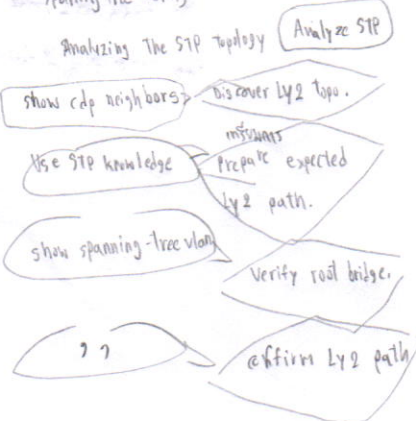 Analyzing The STP Topology
Analyze STP
show cdp neighbors
Discover Ly2 Topo.
Use STP knowledge
Prepare expected
Ly2 path.
show spanning-tree vlan
Verify root bridge.
,,
Ly2 path